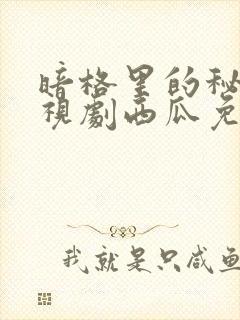 暗格里的秘
視劇西瓜免
我就是只咸鱼